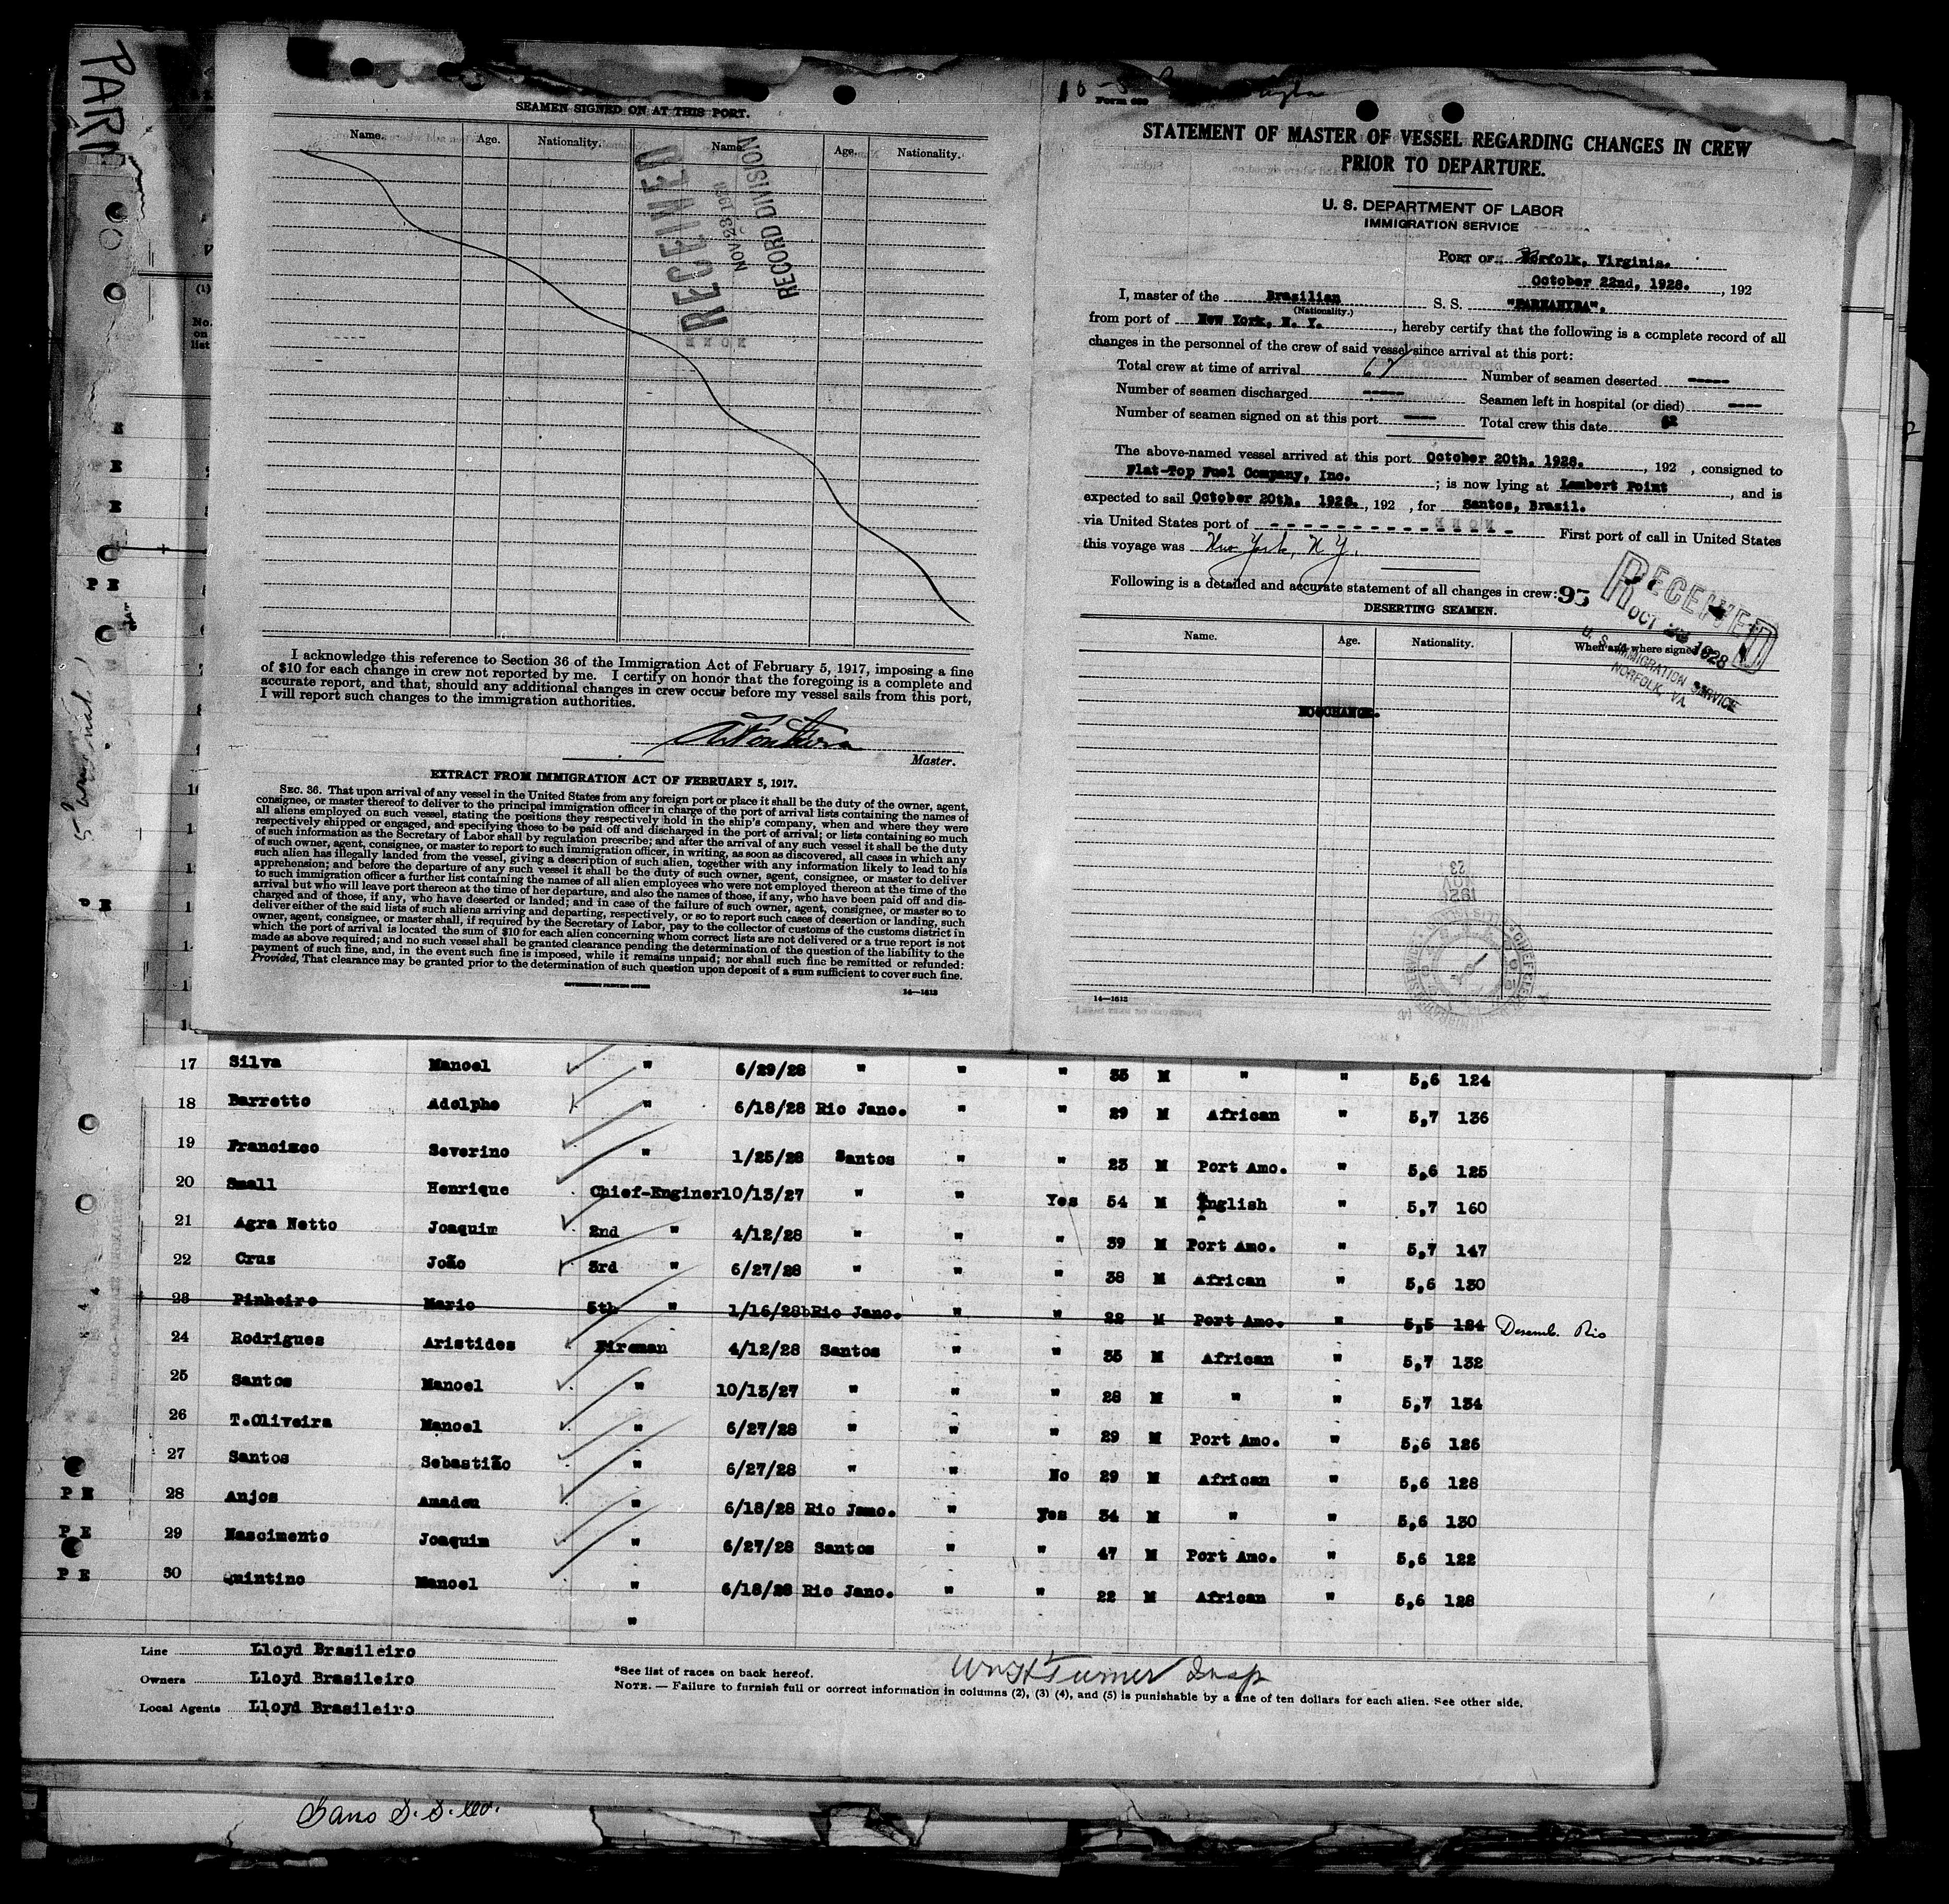 PARN
SEAMEN SIGNED ON AT THIS PORT.
Name. Age. Nationality. Name. Age. Nationality.
RECEIVED
NOV 23 1921
RECORD DIVISION
I acknowledge this reference to Section 36 of the Immigration Act of February 5, 1917, imposing a fine
of $10 for each change in crew not reported by me. I certify on honor that the foregoing is a complete and
accurate report, and that, should any additional changes in crew occur before my vessel sails from this port,
I will report such changes to the immigration authorities.
Master.
EXTRACT FROM IMMIGRATION ACT OF FEBRUARY 5, 1917.
SEC. 36. That upon arrival of any vessel in the United States from any foreign port or place it shall be the duty of the owner, agent,
consignee, or master thereof to deliver to the principal immigration officer in charge of the port of arrival lists containing the names of
all aliens employed on such vessel, stating the positions they respectively hold in the ship's company, when and where they were
respectively shipped or engaged, and specifying those to be paid off and discharged in the port of arrival; or lists containing so much
of such information as the Secretary of Labor shall by regulation prescribe; and after the arrival of any such vessel it shall be the duty
of such owner, agent, consignee, or master to report to such immigration officer, in writing, as soon as discovered, all cases in which any
such alien has illegally landed from the vessel, giving a description of such alien, together with any information likely to lead to his
apprehension; and before the departure of any such vessel it shall be the duty of such owner, agent, consignee, or master to deliver
to such immigration officer a further list containing the names of all alien employees who were not employed thereon at the time of the
arrival but who will leave port thereon at the time of her departure, and also the names of those, if any, who have been paid off and dis-
charged and of those, if any, who have deserted or landed; and in case of the failure of such owner, agent, consignee, or master so to
deliver either of the said lists of such aliens arriving and departing, respectively, or so to report such cases of desertion or landing, such
owner, agent, consignee, or master shall, if required by the Secretary of Labor, pay to the collector of customs of the customs district in
which the port of arrival is located the sum of $10 for each alien concerning whom correct lists are not delivered or a true report is not
made as above required; and no such vessel shall be granted clearance pending the determination of the question of the liability to the
payment of such fine, and, in the event such fine is imposed, while it remains unpaid; nor shall such fine be remitted or refunded:
Provided, That clearance may be granted prior to the determination of such question upon deposit of a sum sufficient to cover such fine.
GOVERNMENT PRINTING OFFICE
14—1613
Form 689
STATEMENT OF MASTER OF VESSEL REGARDING CHANGES IN CREW
PRIOR TO DEPARTURE.
U. S. DEPARTMENT OF LABOR
IMMIGRATION SERVICE
PORT OF Norfolk, Virginia.
October 22nd, 1928. , 192
I, master of the Brasilian S. S. "PARNAHYBA",
(Nationality.)
from port of New York, N. Y. , hereby certify that the following is a complete record of all
changes in the personnel of the crew of said vessel since arrival at this port:
Total crew at time of arrival 62 Number of seamen deserted -----
Number of seamen discharged ----- Seamen left in hospital (or died) ----
Number of seamen signed on at this port ---- Total crew this date 62
The above-named vessel arrived at this port October 20th, 1928. , 192 , consigned to
Flat-Top Fuel Company, Inc. ; is now lying at Lambert Point , and is
expected to sail October 20th, 1928. , 192 , for Santos, Brasil.
via United States port of - - - - - - - - - - - - - - - - First port of call in United States
this voyage was New York, N Y.
Following is a detailed and accurate statement of all changes in crew: 95
DESERTING SEAMEN.
RECEIVED
OCT 1928
U. S. IMMIGRATION SERVICE
NORFOLK, VA
Name. Age. Nationality. When and where signed
NO CHANGE.
NOV 23 1921
14—1613
(1)
No.
on
list
17 Silva Manoel " 6/29/28 " " " 35 M " " 5,6 124
18 Barretto Adolpho " 6/18/28 Rio Jano. " " 29 M African " 5,7 136
19 Francisco Severino " 1/25/28 Santos " " 23 M Port Amo. " 5,6 125
20 Small Henrique Chief-Enginer 10/13/27 " " Yes 54 M English " 5,7 160
21 Agra Netto Joaquim 2nd " 4/12/28 " " " 39 M Port Amo. " 5,7 147
22 Cruz João 3rd " 6/27/28 " " " 38 M African " 5,6 130
23 Pinheiro Mario 5th " 1/16/28 Rio Jano. " " 22 M Port Amo. " 5,5 124 Desemb. Rio
24 Rodrigues Aristides Fireman 4/12/28 Santos " " 35 M African " 5,7 132
25 Santos Manoel " 10/13/27 " " " 28 M " " 5,7 134
26 T.Oliveira Manoel " 6/27/28 " " " 29 M Port Amo. " 5,6 126
27 Santos Sebastião " 6/27/28 " " No 29 M African " 5,6 128
P E 28 Anjos Amadeu " 6/18/28 Rio Jano. " Yes 34 M " " 5,6 130
P E 29 Nascimento Joaquim " 6/27/28 Santos " " 47 M Port Amo. " 5,6 122
P E 30 Quintino Manoel " 6/18/28 Rio Jano. " " 22 M African " 5,6 128
"
Line Lloyd Brasileiro
Owners Lloyd Brasileiro
Local Agents Lloyd Brasileiro
*See list of races on back hereof.
Wm H Turner Insp
NOTE. — Failure to furnish full or correct information in columns (2), (3) (4), and (5) is punishable by a fine of ten dollars for each alien. See other side.